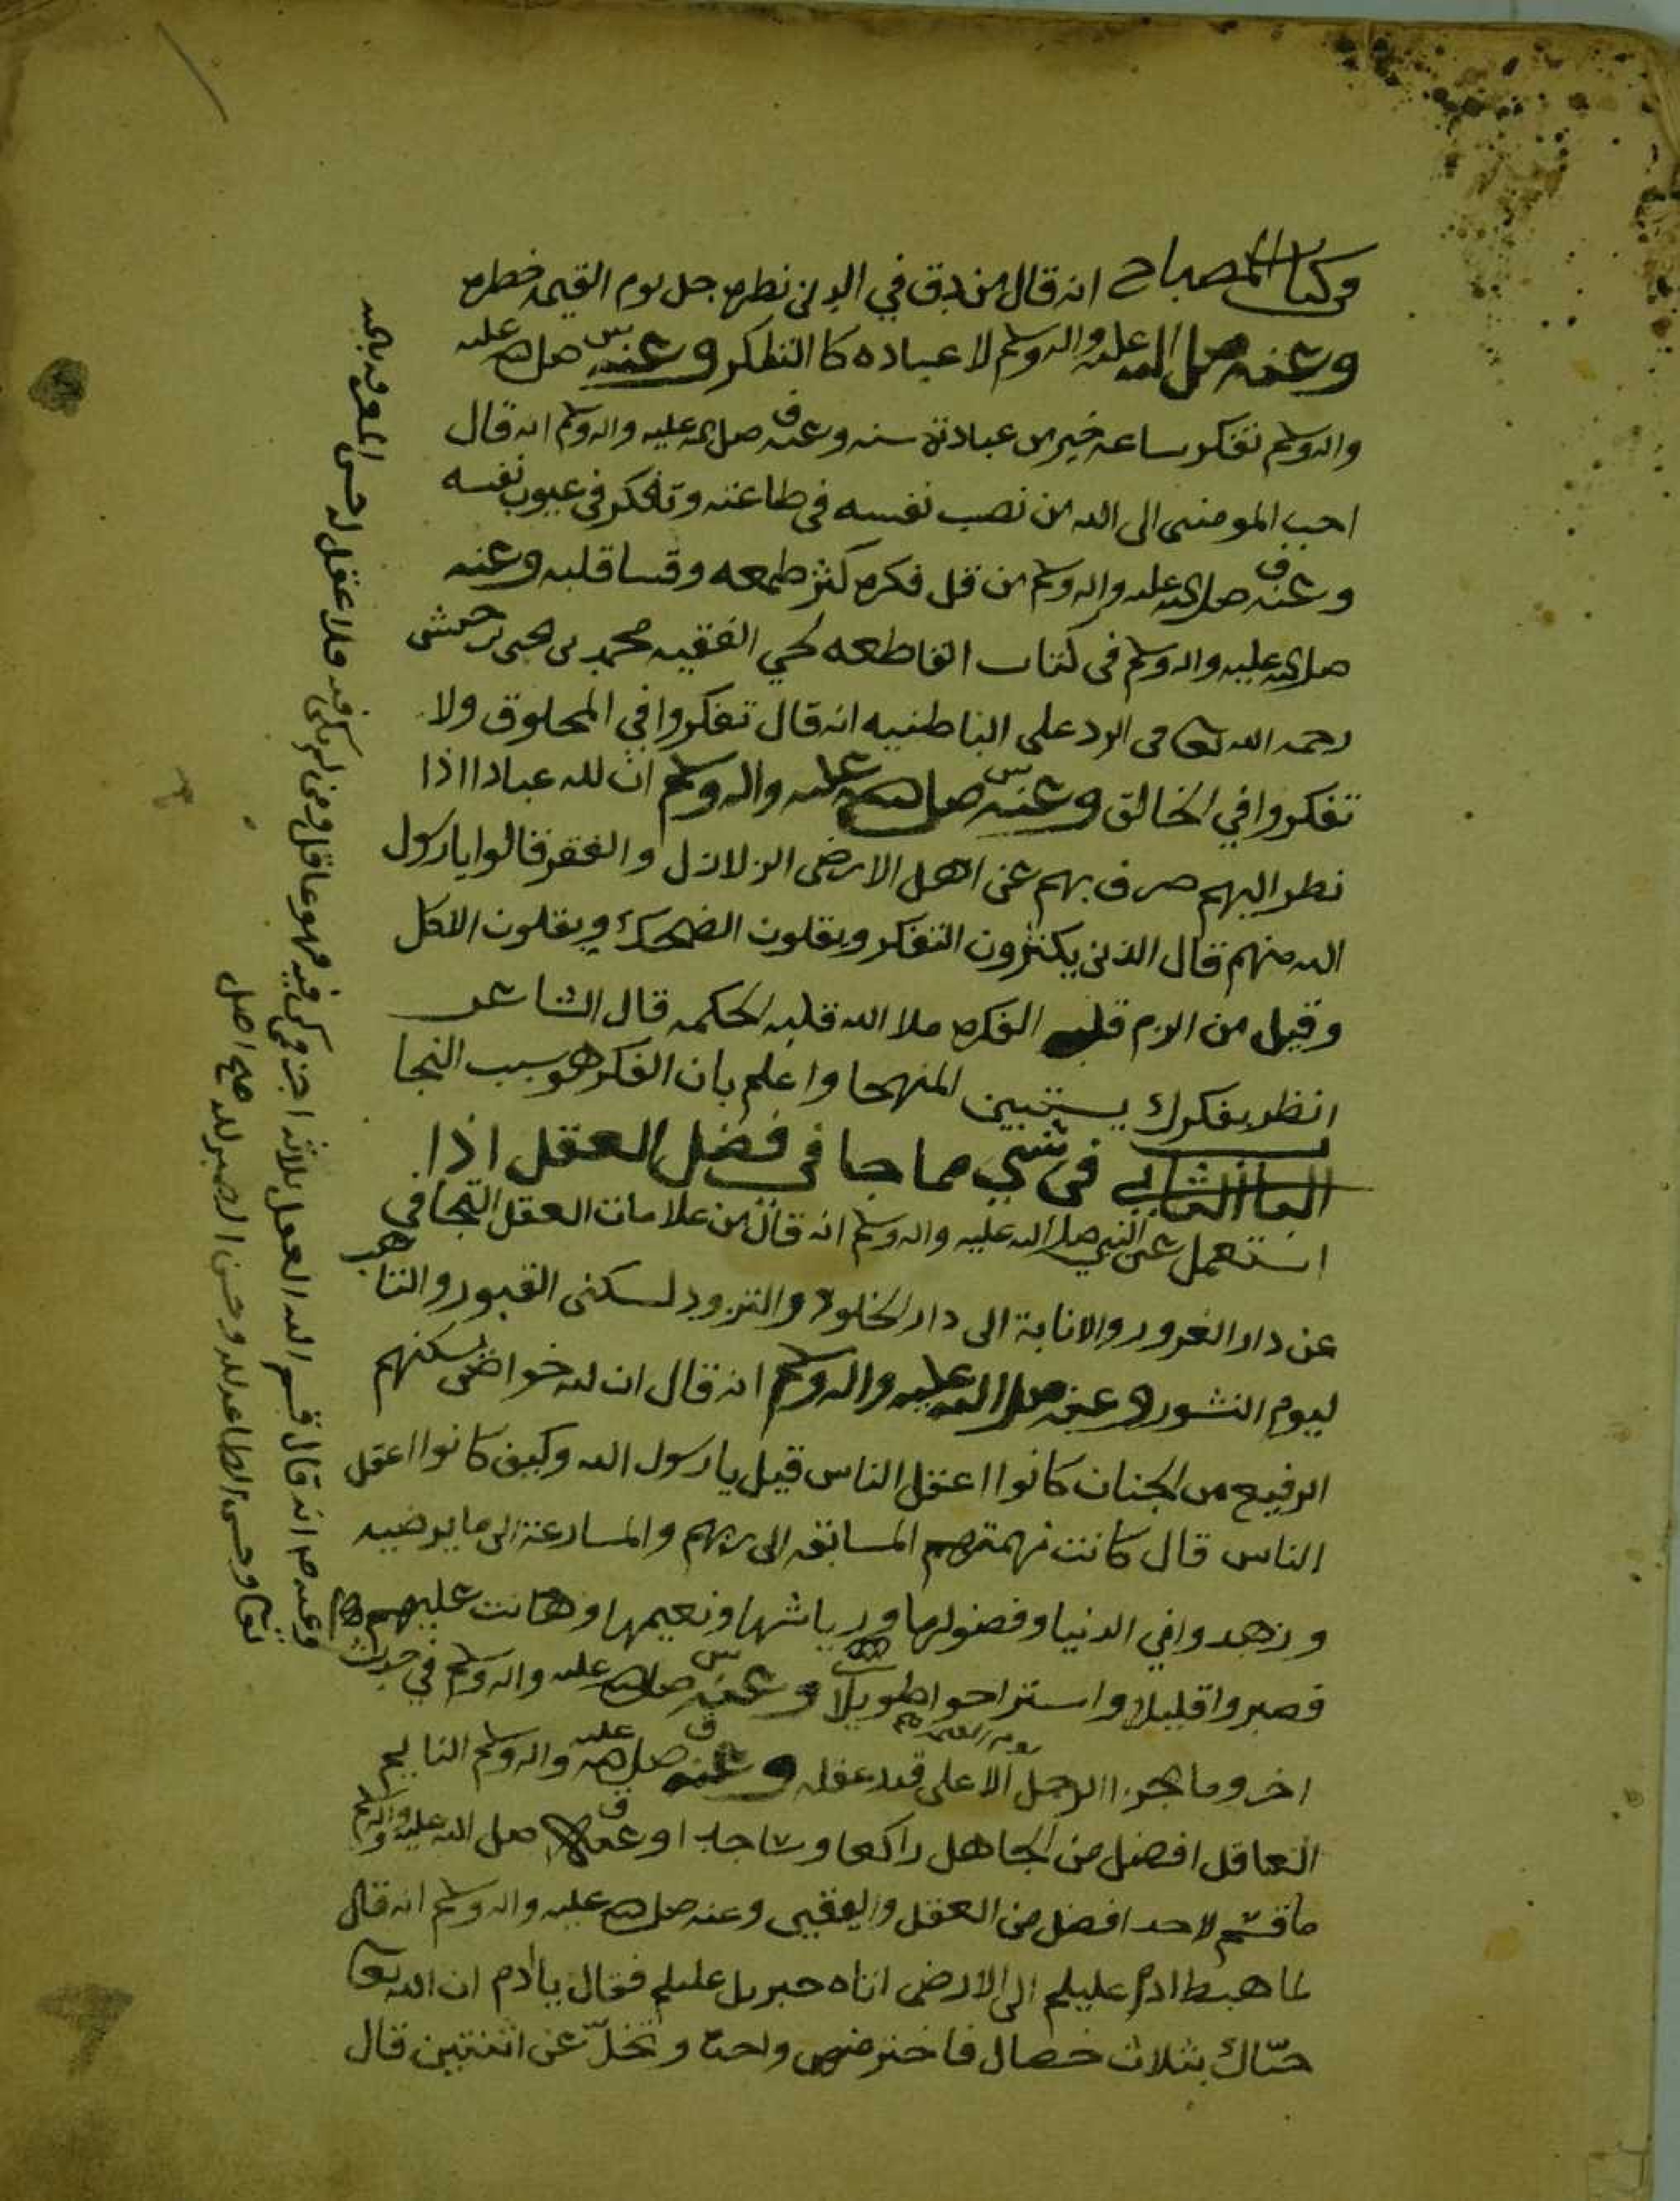 في كتاب المصباح انه قال من دق في الدين نظره جل يوم القيمه خطره
وعنه صلى الله عليه واله وسلم لا عباده كا التفكر وعنه صلى الله عليه
واله وسلم تفكر ساعه خير من عبادة سنه وعنه صلى الله عليه واله وسلم انه قال
احب المومنين الى الله من نصب نفسه في طاعته وتفكر في عيوب نفسه
وعنه صلى الله عليه واله وسلم من قل فكره كثر طمعه وقسا قلبه وعنه
صلى الله عليه واله وسلم في كتاب القاطعه لحي الفقيه محمد بن يحيى بن حنش
رحمه الله تعا في الرد على الباطنيه انه قال تفكروا في المخلوق ولا
تفكروا في الخالق وعنه صلى الله عليه واله وسلم ان لله عبادا اذا
نظر اليهم صرف بهم عن اهل الارض الزلازل والفقر فقالوا يا رسول
الله منهم قال الذين يكثرون التفكر ويقلون الضحك ويقلون الاكل
وقيل من الزم قلبه الفكره ملا الله قلبه لحكمه قال الشاعر
انظر بفكرك يستبين المنهجا واعلم بان الفكر هو سبب النجا
الباب الثاني في شي مما جا في فضل العقل اذا
استعمل عن النبي صلى الله عليه واله وسلم انه قال من علامات العقل التجافي
عن دار الغرور والانابة الى دار الخلود والتزود لسكنى القبور والتاهب
ليوم النشور وعنه صلى الله عليه واله وسلم انه قال ان لله خواص يسكنهم
الرفيع من الجنان كانوا اعقل الناس قيل يا رسول الله وكيف كانوا اعقل
الناس قال كانت نهمتهم المسابقه الى ربهم والمسارعة الى ما يرضيه
وزهدوا في الدنيا وفضولها ورياشها ونعيمها وهانت عليهم
فصبروا قليلا واستراحوا طويلا وعنه صلى الله عليه واله وسلم في حديث
يوم القيمه
اخر وما يجزا الرجل الا على قدر عقله وعنه صلى الله عليه واله وسلم النايم
العاقل افضل من الجاهل راكعا وساجدا وعنه صلى الله عليه واله وسلم
ما قسم لاحد افضل من العقل واليقين وعنه صلى الله عليه واله وسلم انه قال
لما هبط ادم عليلم الى الارض اتاه جبريل عليلم فقال يا ادم ان الله تعا
حباك بثلاث خصال فاختر منهن واحدة وتخل عن اثنتين قال
وعنه صلم انه قال قسم الله العقل ثلاثه اجزا فمن كن فيه فهو عاقل ومن لم يكن فيه فلا عقل له حسن المعرفه بالله
تعا وحسن الطاعه لله وحسن الصبر لله صح اصل